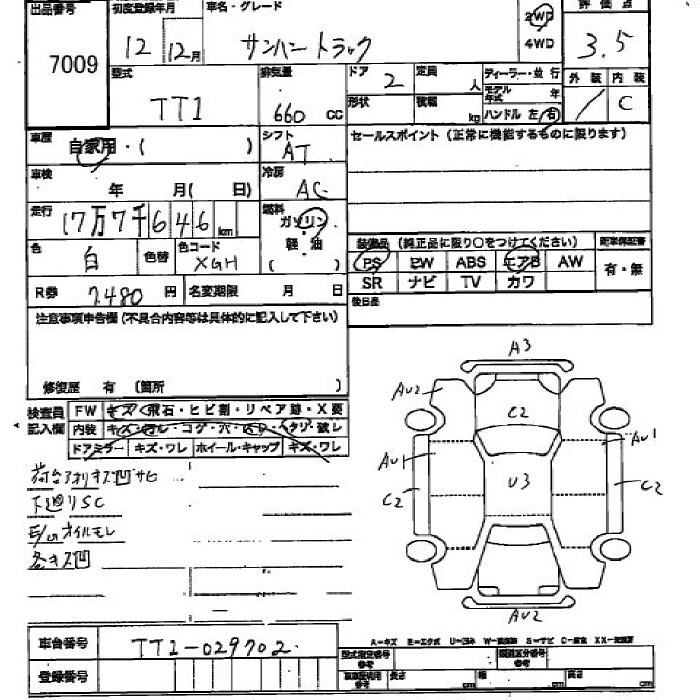 出品番号 初度登録年月 車名・グレード 2WD 評価点
7009 12 12月 サンバートラック 4WD 3.5
型式 排気量 ドア 2 定員 人 ディーラー・並行 外装 内装
TT1 660 CC 形状 積載 kg モデル年式 年 ハンドル 左 右 / C
車歴 自家用・( ) シフト AT セールスポイント (正常に機能するものに限ります)
車検 年 月( 日) 冷房 AC
走行 17万7千646km 燃料 ガソリン・軽油 ( )
装備品 (純正品に限り○をつけてください) 新車保証書
色 白 色替 色コード XGH PS PW ABS エアB AW 有・無
SR ナビ TV カワ
R券 7,480 円 名変期限 月 日 後日品
注意事項申告欄 (不具合内容等は具体的に記入して下さい)
修復歴 有 (箇所 )
検査員 FW キズ・飛石・ヒビ割・リペア跡・X要
記入欄 内装 キズ・汚レ・コゲ・穴・
ドアミラー キズ・ワレ ホイール・キャップ キズ・ワレ
荷台アオリキズ凹サビ
下廻りSC
E/Gオイルモレ
各キズ凹
A3
AU2
C2
AU1 AU1
U3
C2 C2
AU2
車台番号 TT2-029702
登録番号
A=キズ
型式指定番号 参考 類別区分番号 参考
参考 長さ cm 幅 cm 高さ cm